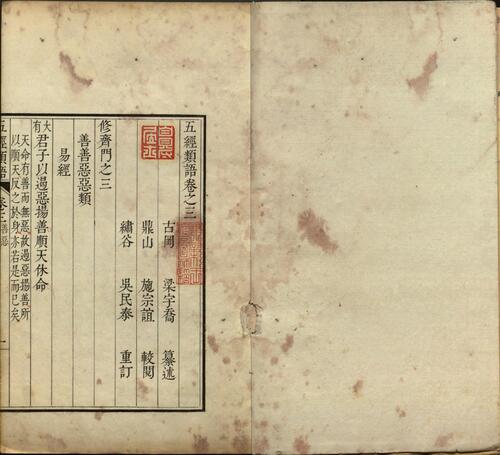 五經類語卷之三
古岡 梁宇喬 纂述
鼎山 施宗誼 較閱
繡谷 吳民泰 重訂
修齊門之三
善善惡惡類
易經
大有 君子以遏惡揚善順天休命
天命有善而無惡故遏惡揚善所
以順天反之於身亦若是而已矣
五經類語 卷之三 善惡 一